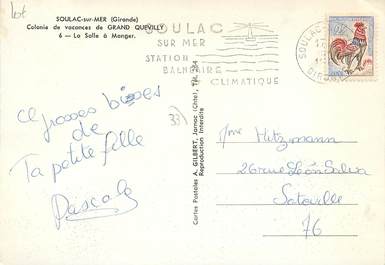 lot
SOULAC-sur-MER (Gironde)
Colonie de vacances de GRAND QUEVILLY
6 - La Salle à Manger.
SOULAC
SUR MER
STATION
BALNEAIRE
CLIMATIQUE
SOULAC
GIRONDE
33)
grosses bises
de
Ta petite fille
Pascale
Cartes Postales A. GILBERT, Jarnac (Chte), Tél. 284
Reproduction Interdite
Mme Hitzmann
26 rue Léon Salva
Sotteville
76